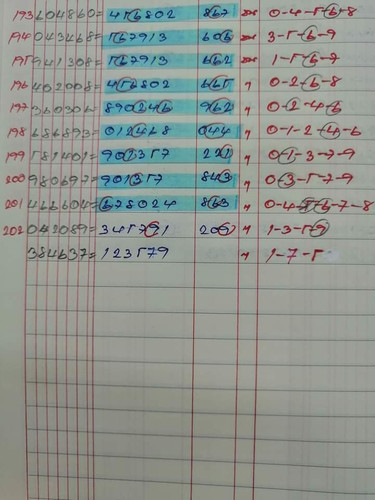 193 604860= 456802 867 " 0-4-5-6-8
194 043468= 567913 606 " 3-5-6-9
195 941308= 567913 662 " 1-5-6-9
196 402008= 456802 665 " 0-2-6-8
197 360306= 890246 962 " 0-2-4-6
198 686893= 012468 044 " 0-1-2-4-6
199 581401= 901357 221 " 0-1-3-7-9
200 980697= 901357 843 " 0-3-5-7-9
201 466604= 678024 863 " 0-4-6-7-8
202 042089= 345791 209 " 1-3-5-9
384637= 123579 " 1-7-5